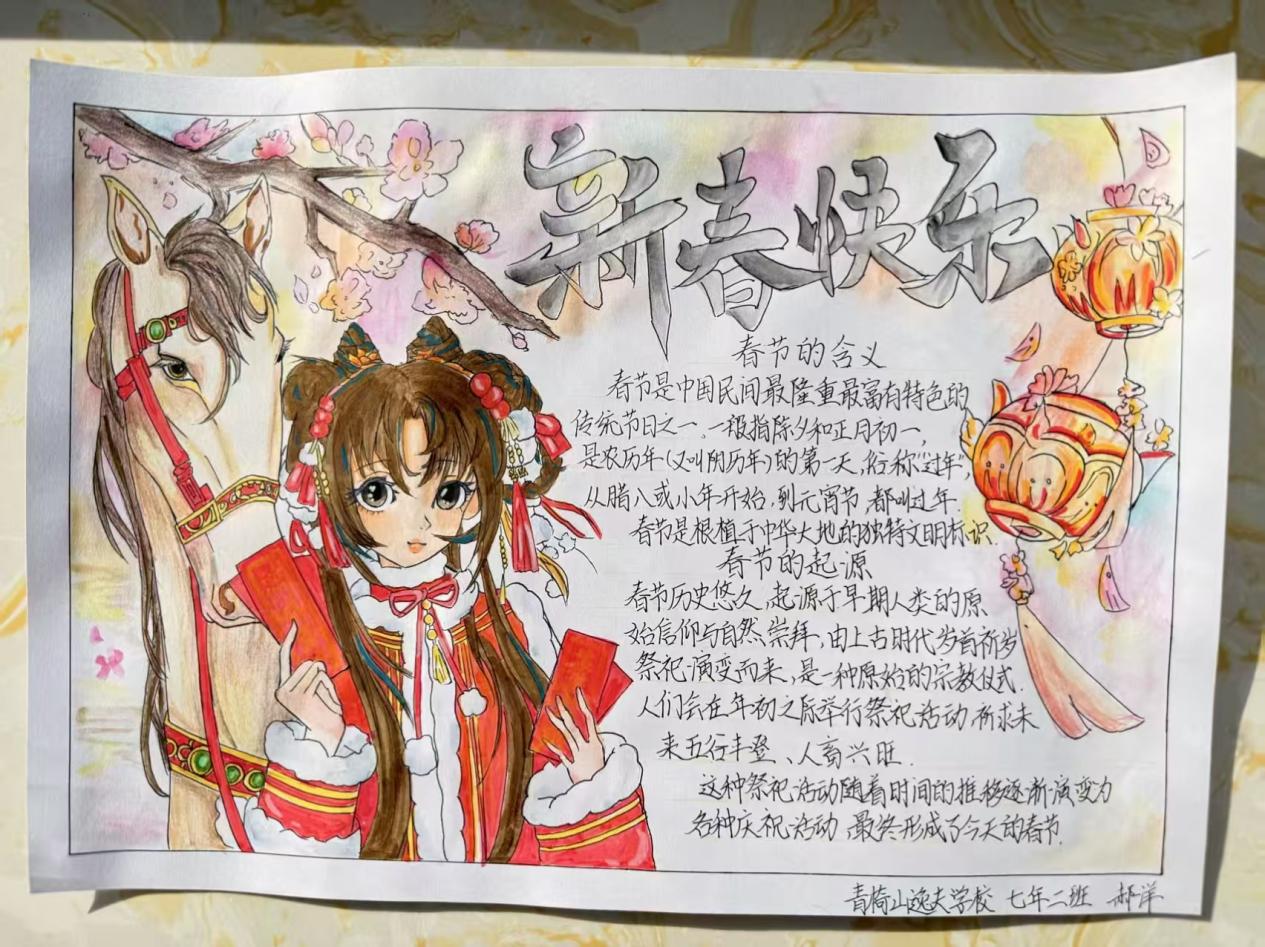 新春快乐
春节的含义
春节是中国民间最隆重最富有特色的
传统节日之一。一般指除夕和正月初一，
是农历年(又叫阴历年)的第一天，俗称“过年”
从腊八或小年开始，到元宵节，都叫过年.
春节是根植于中华大地的独特文明标识.
春节的起源
春节历史悠久，起源于早期人类的原
始信仰与自然崇拜，由上古时代岁首祈岁
祭祀演变而来，是一种原始的宗教仪式.
人们会在年初之际举行祭祀活动，祈求未
来五行丰登、人畜兴旺.
这种祭祀活动随着时间的推移逐渐演变为
各种庆祝活动，最终形成了今天的春节.
青椅山逸夫学校 七年二班 郝洋